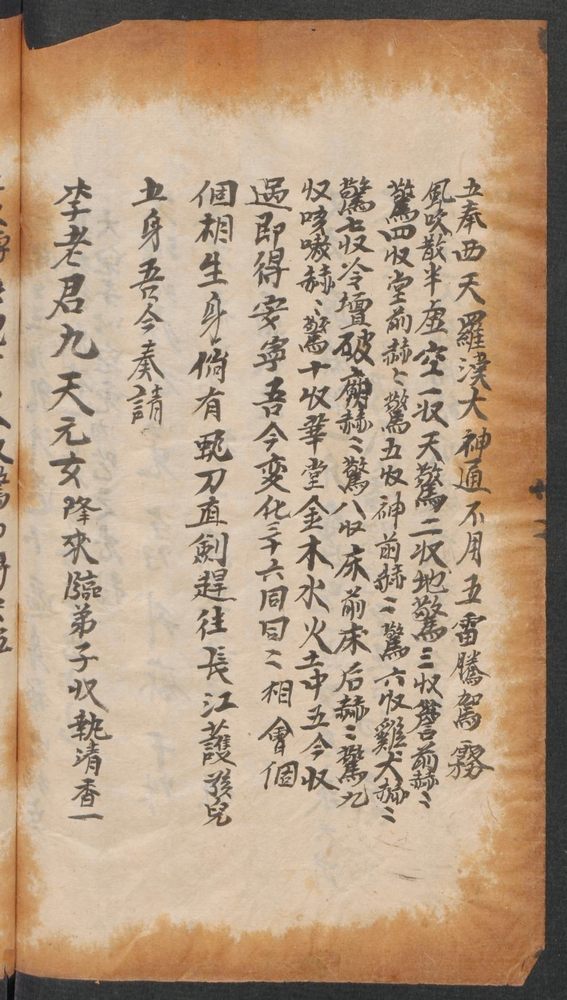 五奉西天羅漢大神通不用五雷騰駕霧
風吹散半虛空一收天驚二收地驚三收前赫〻
驚四收堂前赫〻驚五收神前赫〻驚六收雞犬赫〻
驚七收冷壇破廟赫〻驚八收床前床后赫〻驚九
收咳嗽赫〻驚十收華堂金木水火土中五今收
過即得安寧吾今変化三十六同曰〻相會個
個相生身備有刀直劍趕往長江護孩兒
五身吾今奏請
李老君九天元女降來臨弟子收執清香一